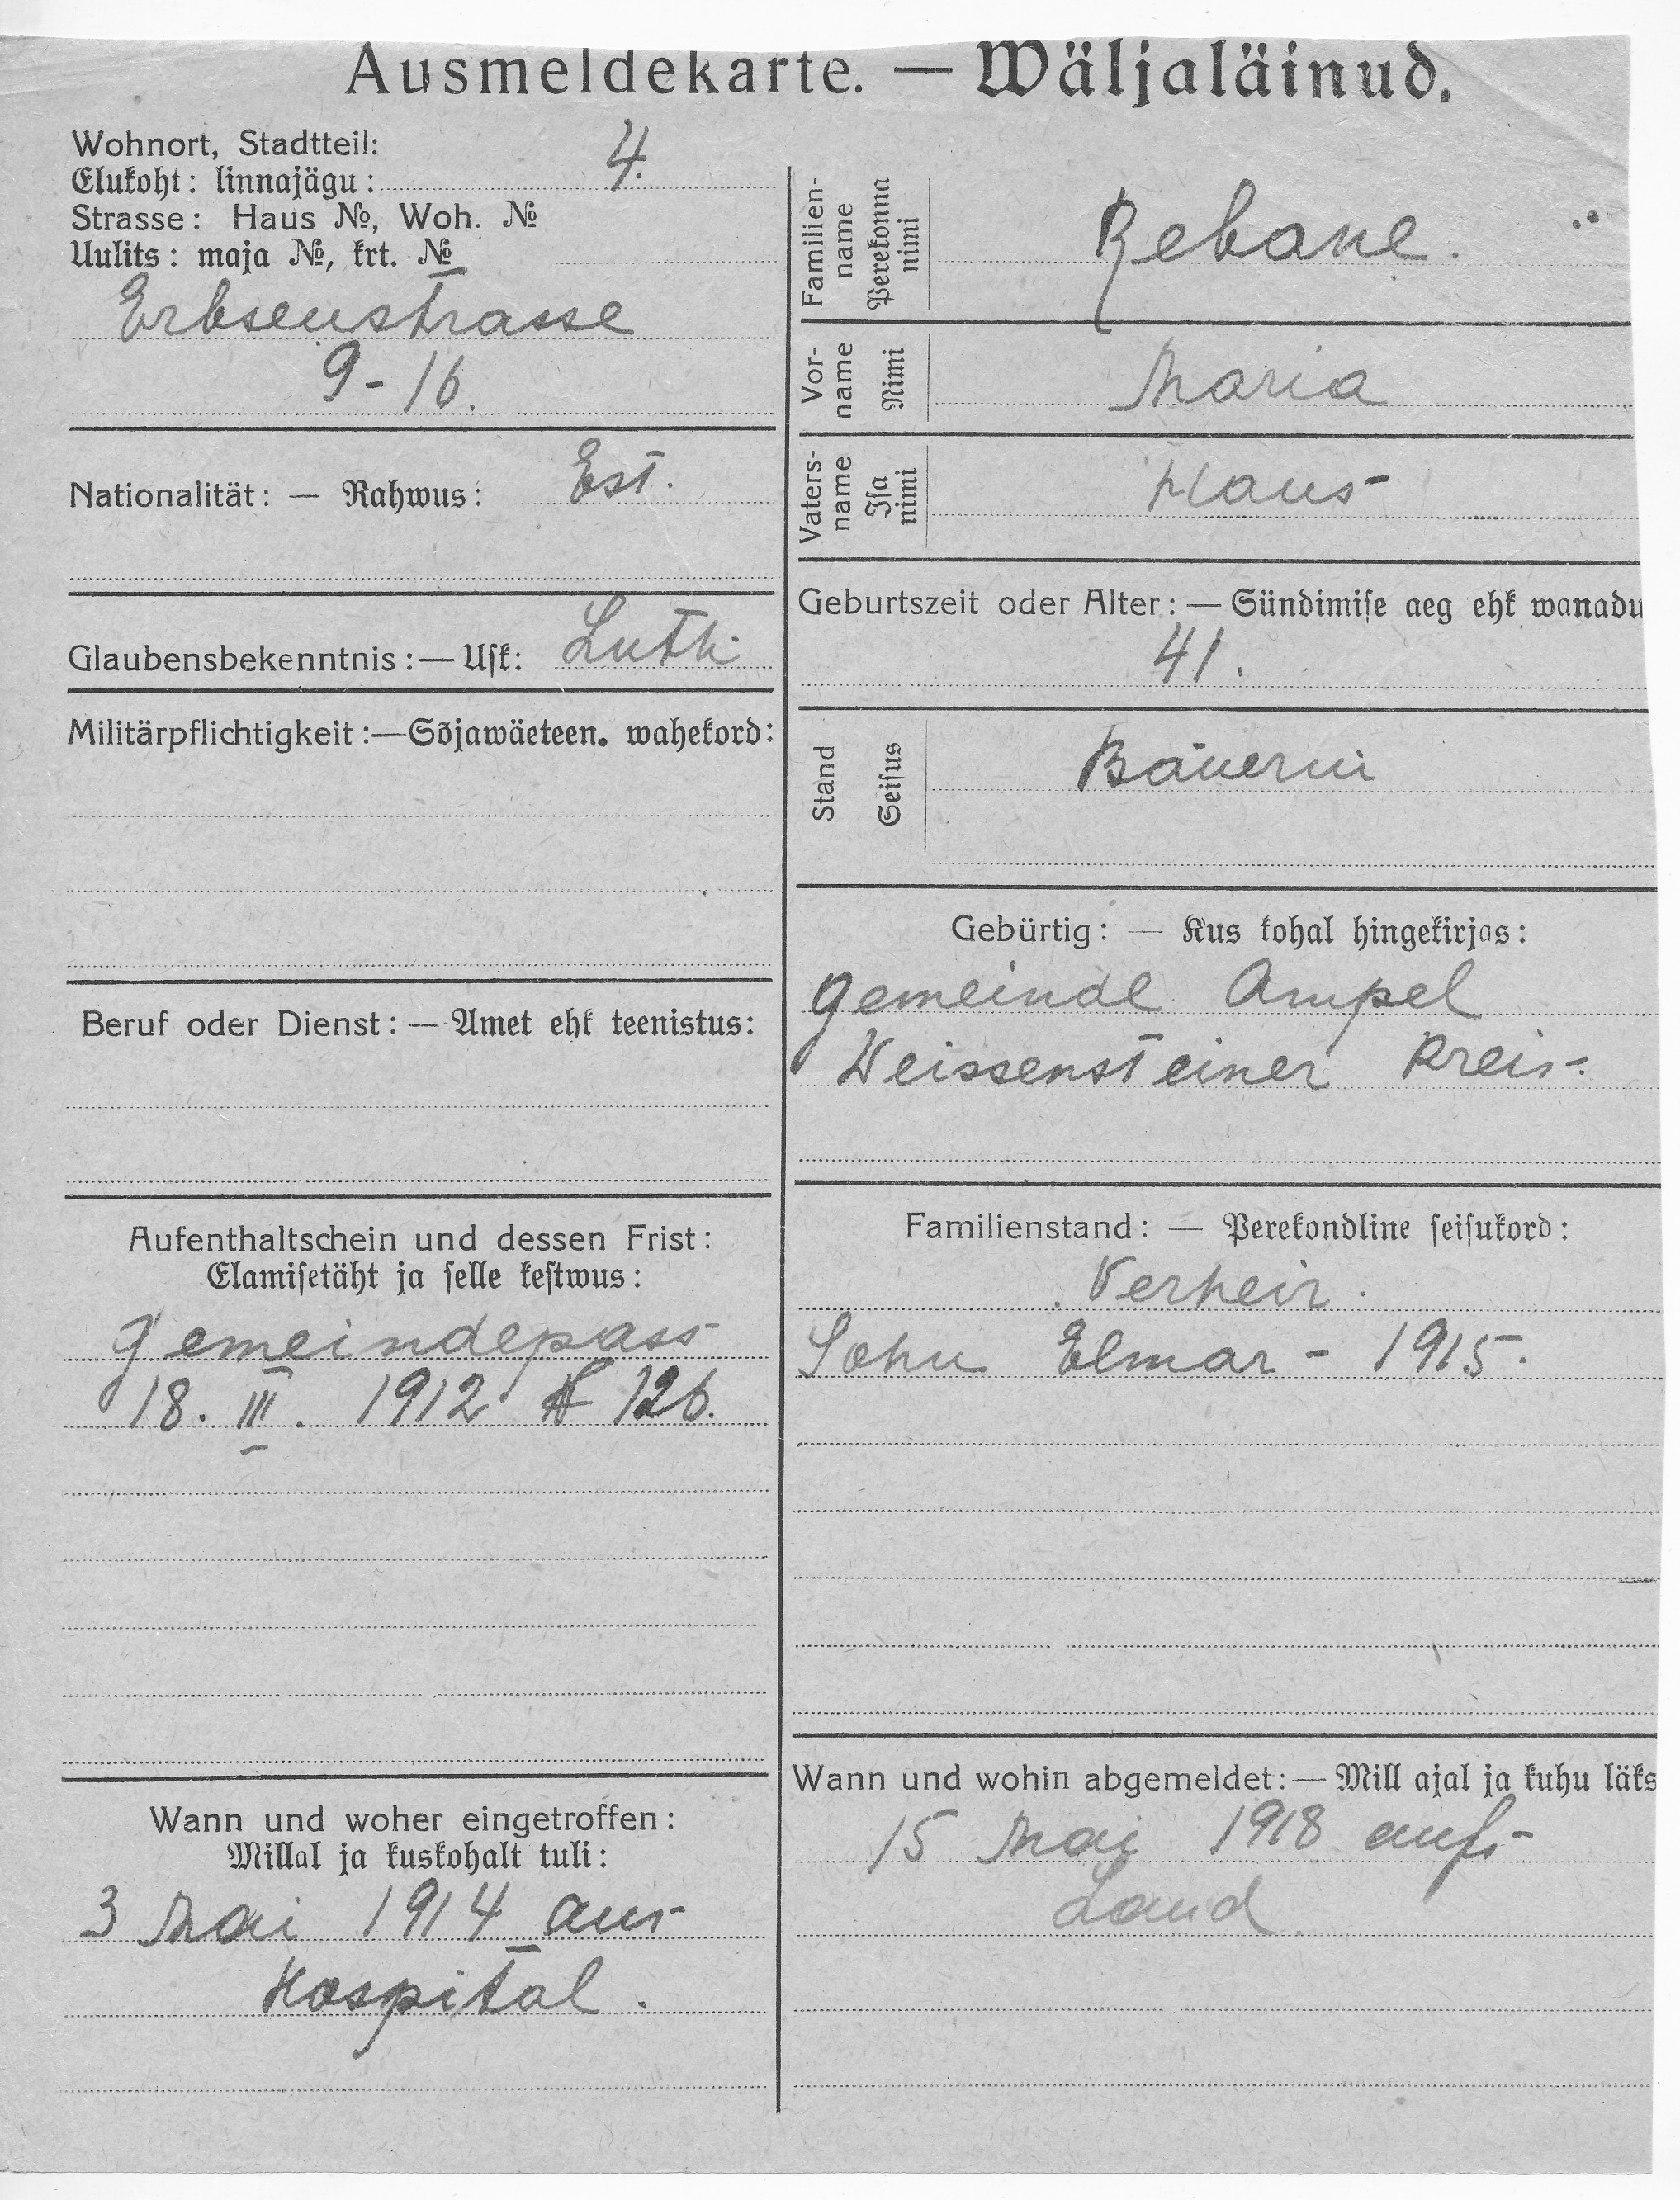 Ausmeldekarte. — Wäljaläinud.
Wohnort, Stadtteil:
Elukoht: linnajägu: 4.
Strasse: Haus №, Woh. №
Uulits: maja №, krt. №
Erbsenstrasse
9-16.
Nationalität: — Rahwus: Est.
Glaubensbekenntnis:— Usk: Luth.
Militärpflichtigkeit:—Sõjawäeteen. wahekord:
Beruf oder Dienst: — Amet ehk teenistus:
Aufenthaltschein und dessen Frist:
Elamisetäht ja selle kestwus:
Gemeindepass
18. III. 1912 № 126.
Wann und woher eingetroffen:
Millal ja kuskohalt tuli:
3 Mai 1914 aus
Hospital.
Familien-
name
Perekonna
nimi
Rebane.
Vor-
name
Nimi
Maria
Vaters-
name
Isa
nimi
Geburtszeit oder Alter: — Sündimise aeg ehk wanadu
41.
Stand
Seisus
Bäuerin
Gebürtig: — Kus kohal hingekirjas:
Gemeinde Ampel
Weissensteiner Kreis.
Familienstand: — Perekondline seisukord:
Verheir.
Sohn Elmar - 1915.
Wann und wohin abgemeldet:— Mill ajal ja kuhu läks
15 Mai 1918 aufs
Land